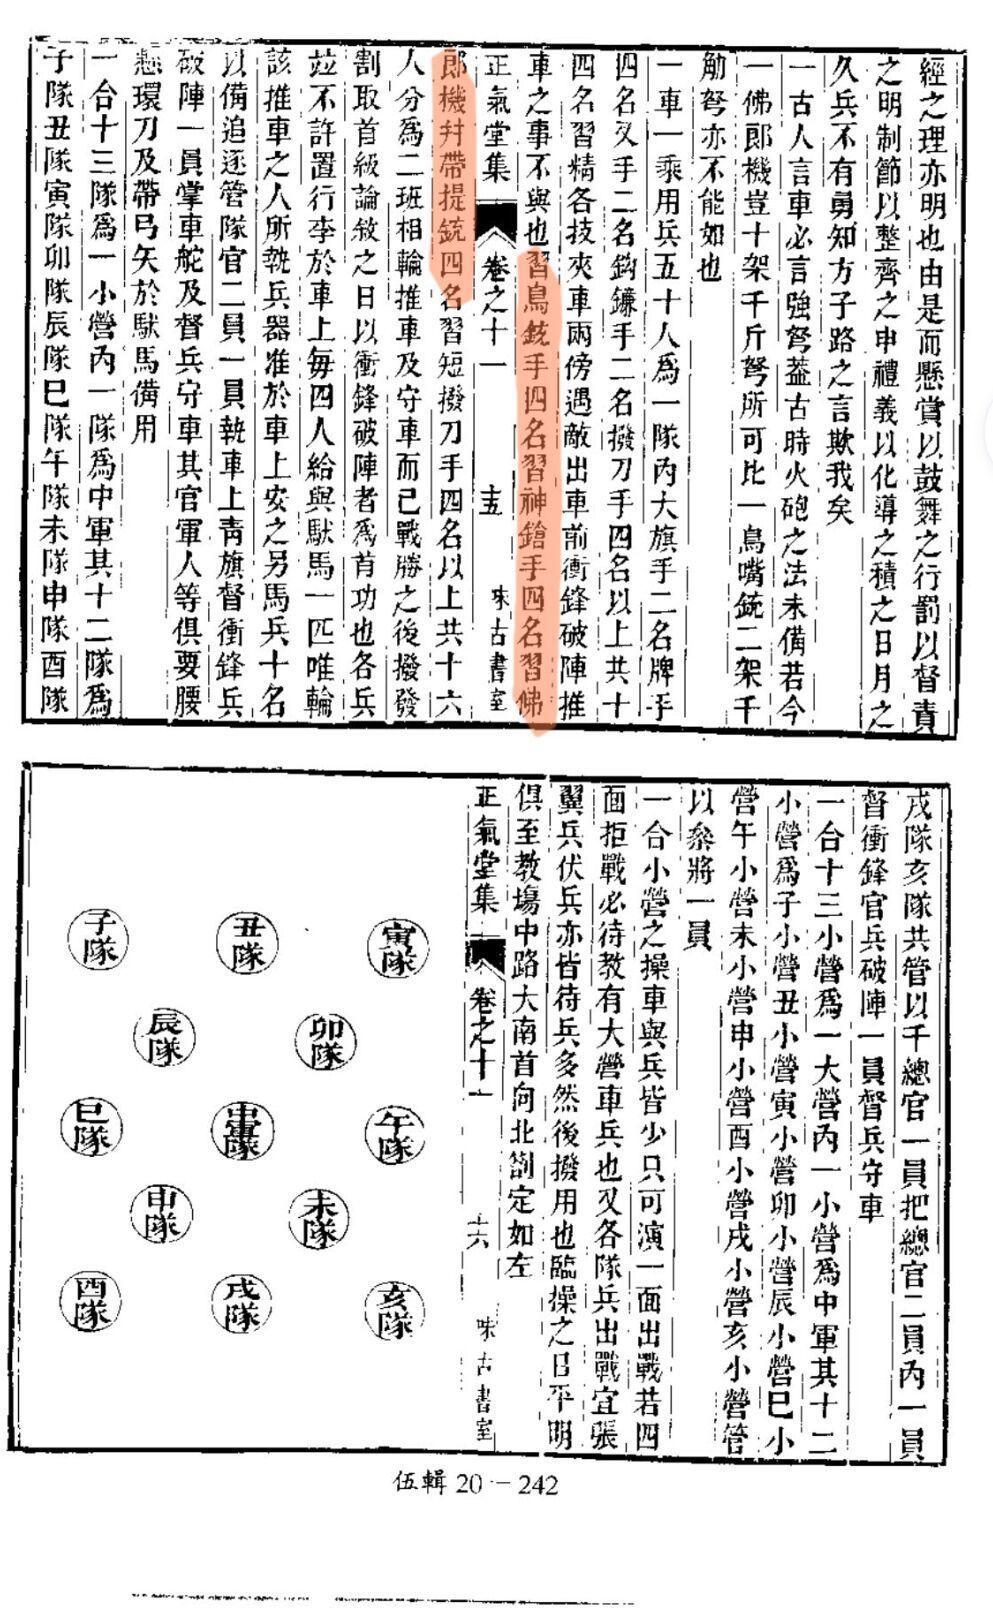 經之理亦明也由是而懸賞以鼓舞之行罰以督責
之明制節以整齊之申禮義以化導之積之日月之
久兵不有勇知方子路之言欺我矣
一古人言車必言強弩葢古時火砲之法未備若今
一佛郎機豈十架千斤弩所可比一鳥嘴銃二架千
觔弩亦不能如也
一車一乘用兵五十人爲一隊內大旗手二名牌手
四名叉手二名鈎鐮手二名撥刀手四名以上共十
四名習精各技夾車兩傍遇敵出車前衝鋒破陣推
車之事不與也習鳥銃手四名習神鎗手四名習佛
正氣堂集 卷之十一 十五 味古書室
郎機幷帶提銃四名習短撥刀手四名以上共十六
人分爲二班相輪推車及守車而已戰勝之後撥發
割取首級論敘之日以衝鋒破陣者爲首功也各兵
竝不許置行李於車上每四人給與馱馬一匹唯輪
該推車之人所執兵器准於車上安之另馬兵十名
以備追逐管隊官二員一員執車上靑旗督衝鋒兵
破陣一員掌車舵及督兵守車其官軍人等俱要腰
懸環刀及帶弓矢於馱馬備用
一合十三隊爲一小營內一隊爲中軍其十二隊爲
子隊丑隊寅隊卯隊辰隊巳隊午隊未隊申隊酉隊
戌隊亥隊共管以千總官一員把總官二員內一員
督衝鋒官兵破陣一員督兵守車
一合十三小營爲一大營內一小營爲中軍其十二
小營爲子小營丑小營寅小營卯小營辰小營巳小
營午小營未小營申小營酉小營戌小營亥小營管
以叅將一員
一合小營之操車與兵皆少只可演一面出戰若四
面拒戰必待教有大營車兵也又各隊兵出戰宜張
翼兵伏兵亦皆待兵多然後撥用也臨操之日平明
俱至教場中路大南首向北劄定如左
正氣堂集 卷之十一 十六 味古書室
寅隊 丑隊 子隊
卯隊 辰隊
午隊 中軍隊 巳隊
未隊 申隊
亥隊 戌隊 酉隊
伍輯 20－242